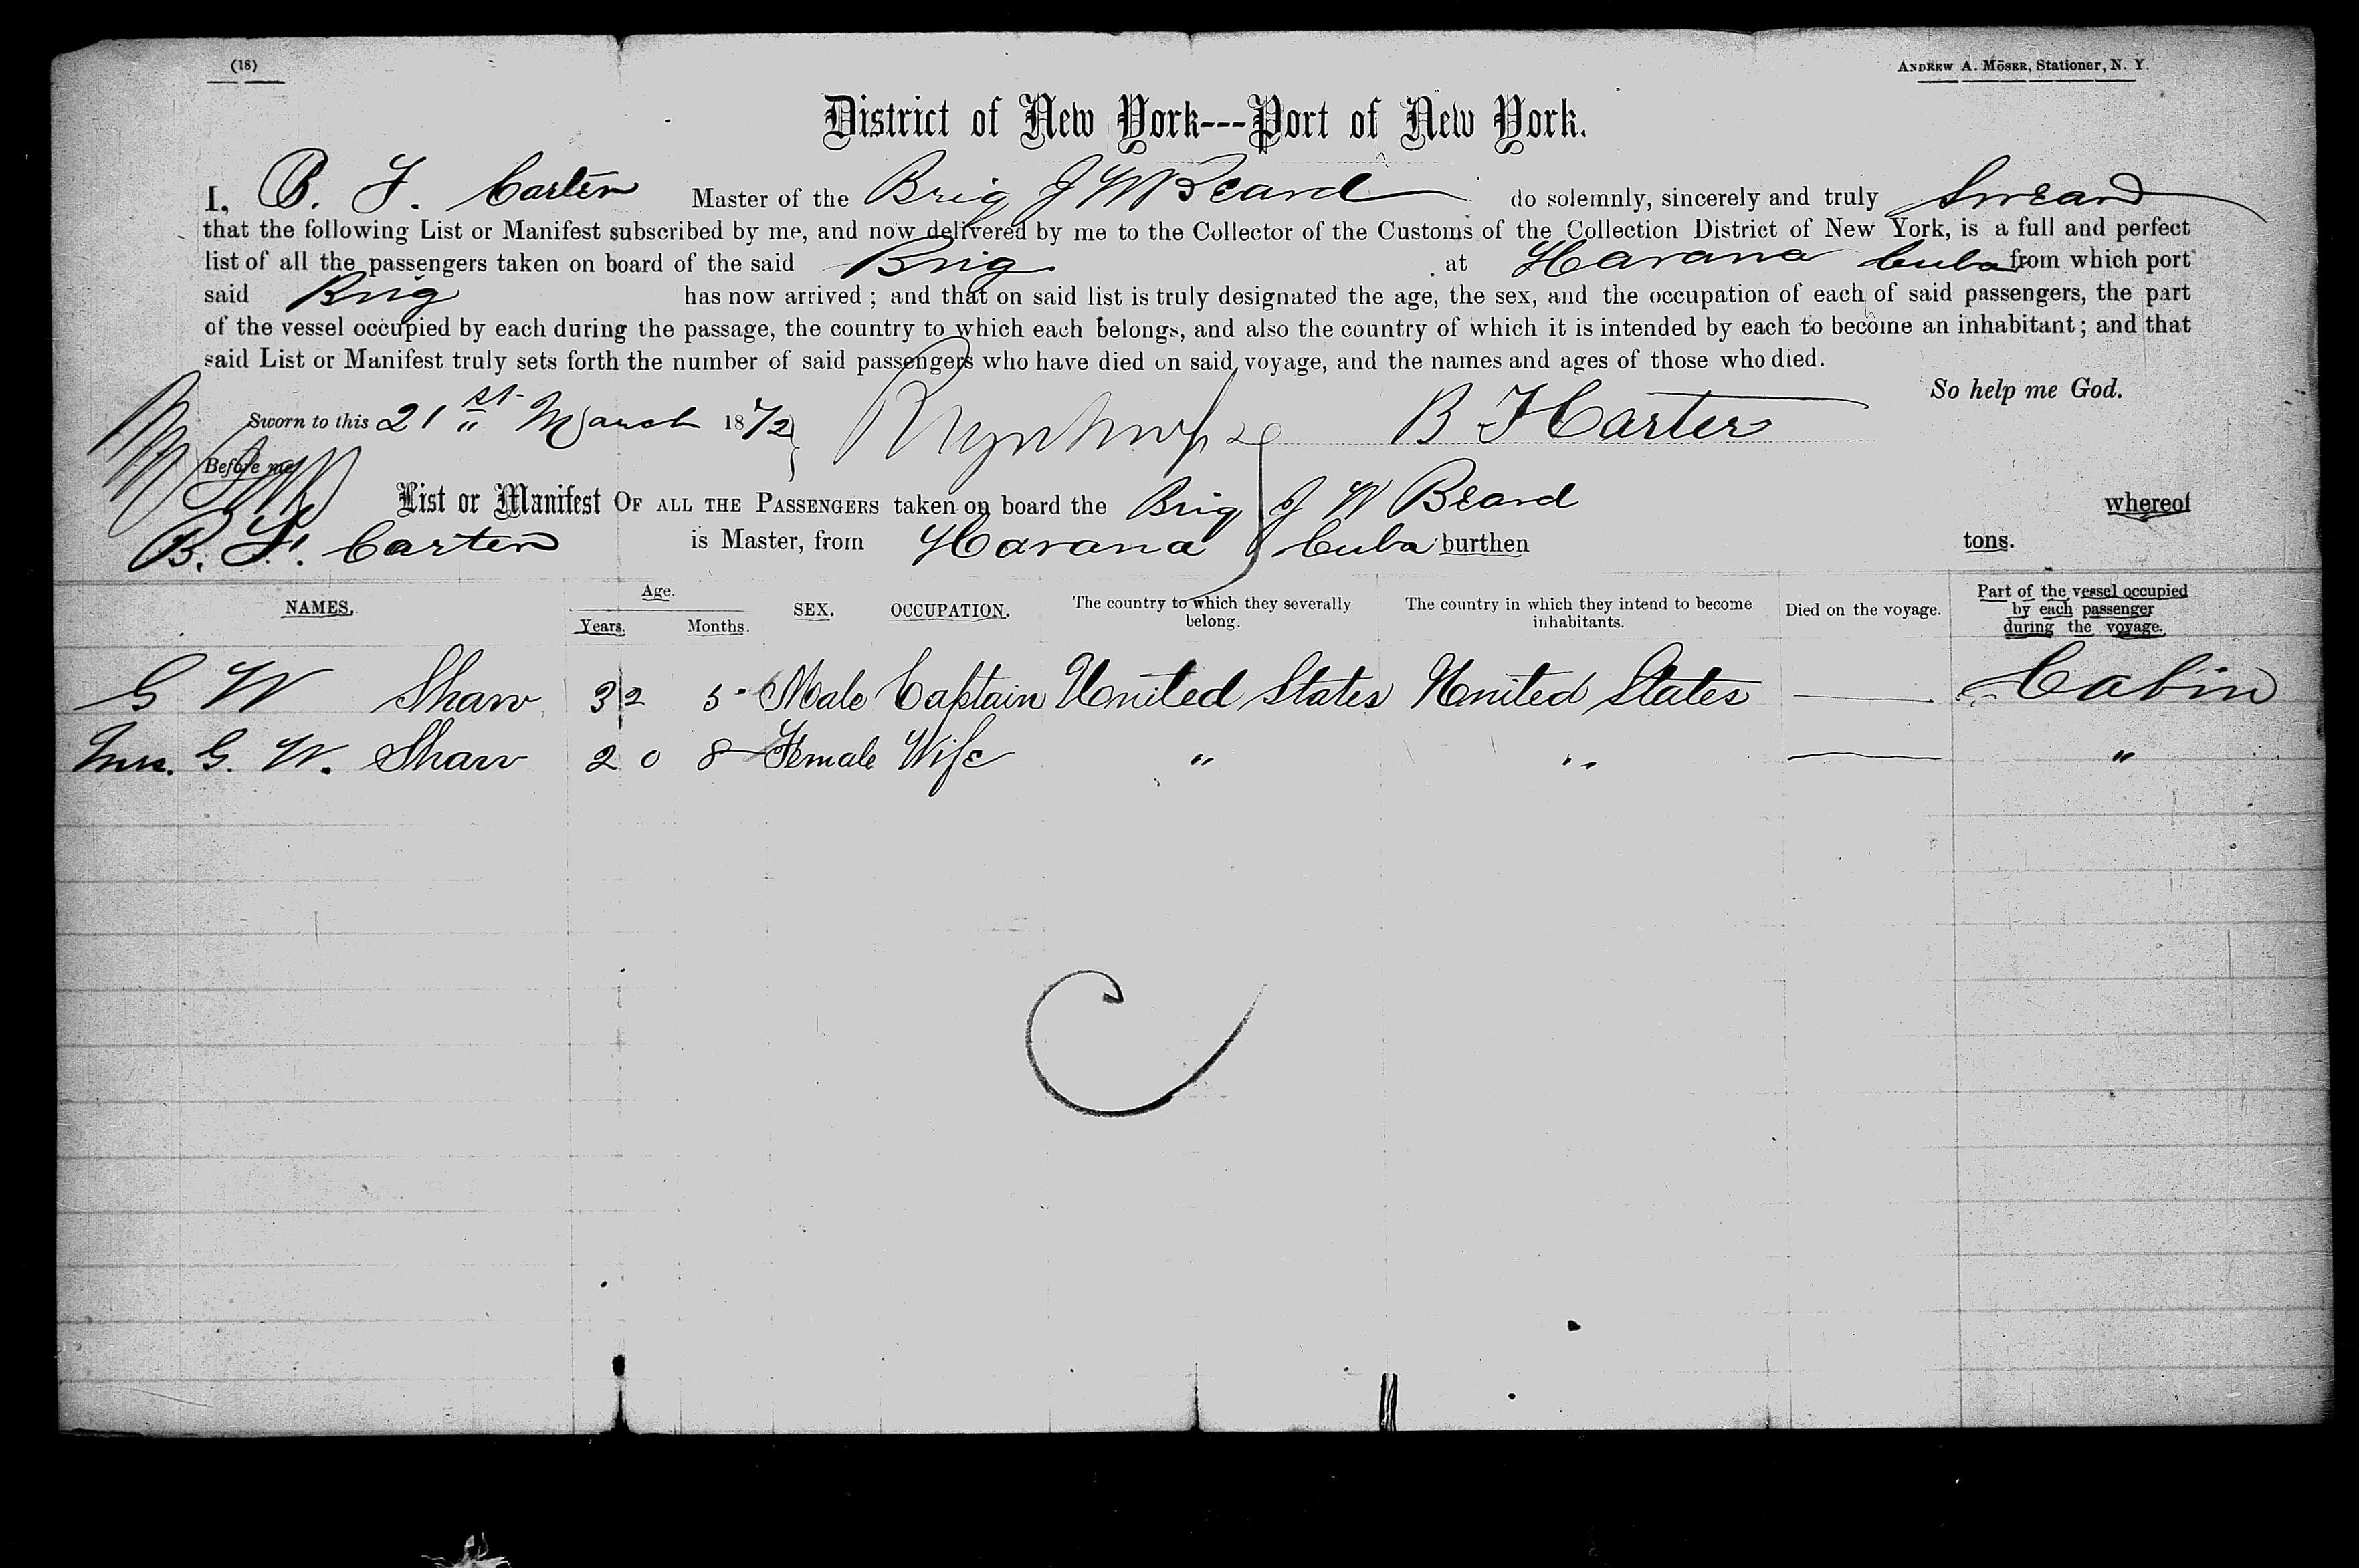 (18)
ANDREW A. MÖSER, Stationer, N. Y.
District of New York---Port of New York.
I, B. F. Carter Master of the Brig J W Beard do solemnly, sincerely and truly Swear
that the following List or Manifest subscribed by me, and now delivered by me to the Collector of the Customs of the Collection District of New York, is a full and perfect
list of all the passengers taken on board of the said Brig at Havana Cuba from which port
said Brig has now arrived; and that on said list is truly designated the age, the sex, and the occupation of each of said passengers, the part
of the vessel occupied by each during the passage, the country to which each belongs, and also the country of which it is intended by each to become an inhabitant; and that
said List or Manifest truly sets forth the number of said passengers who have died on said voyage, and the names and ages of those who died.
So help me God.
Sworn to this 21st March 1872 B F Carter
Before me
List or Manifest OF ALL THE PASSENGERS taken on board the Brig J W Beard whereof
B. F. Carter is Master, from Havana Cuba burthen tons.
NAMES. Age. Years. Months. SEX. OCCUPATION. The country to which they severally belong. The country in which they intend to become inhabitants. Died on the voyage. Part of the vessel occupied by each passenger during the voyage.
G W Shaw 32 5 Male Captain United States United States — Cabin
Mrs. G. W. Shaw 20 8 Female Wife " " — "